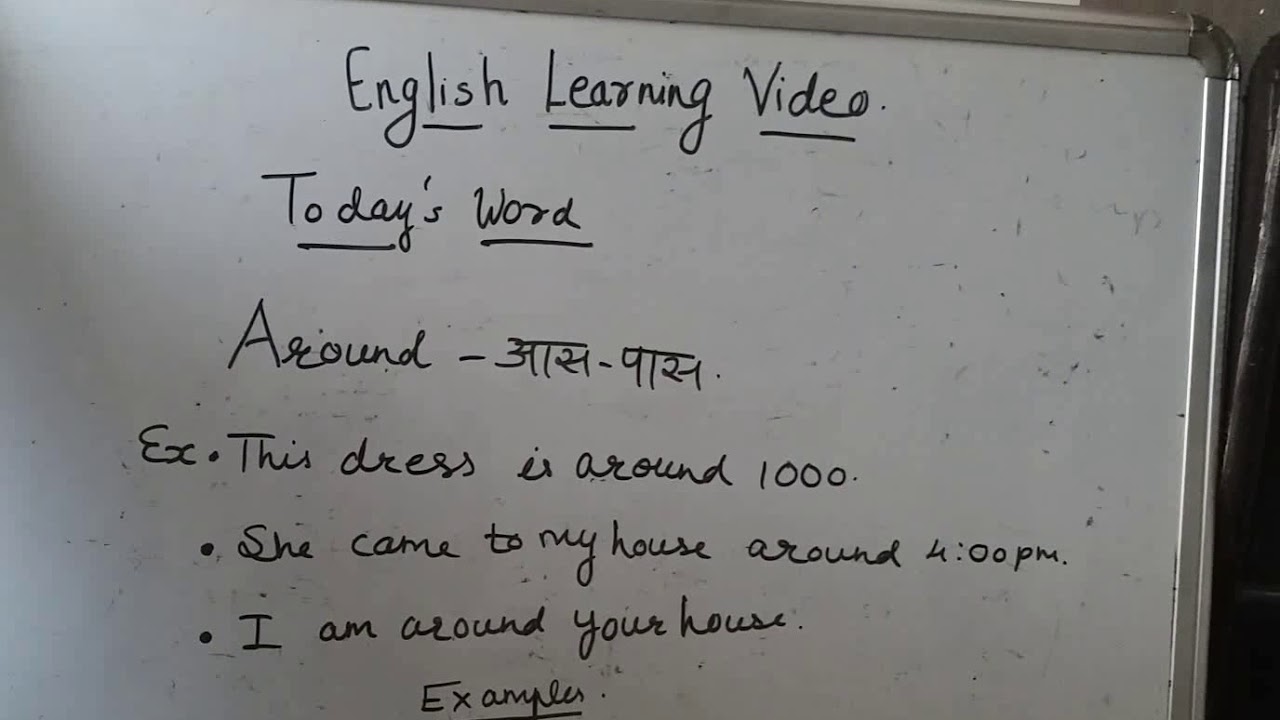 English Learning Video.
Today's Word
Around - आस-पास.
Ex. This dress is around 1000.
• She came to my house around 4:00pm.
• I am around your house.
Examples.